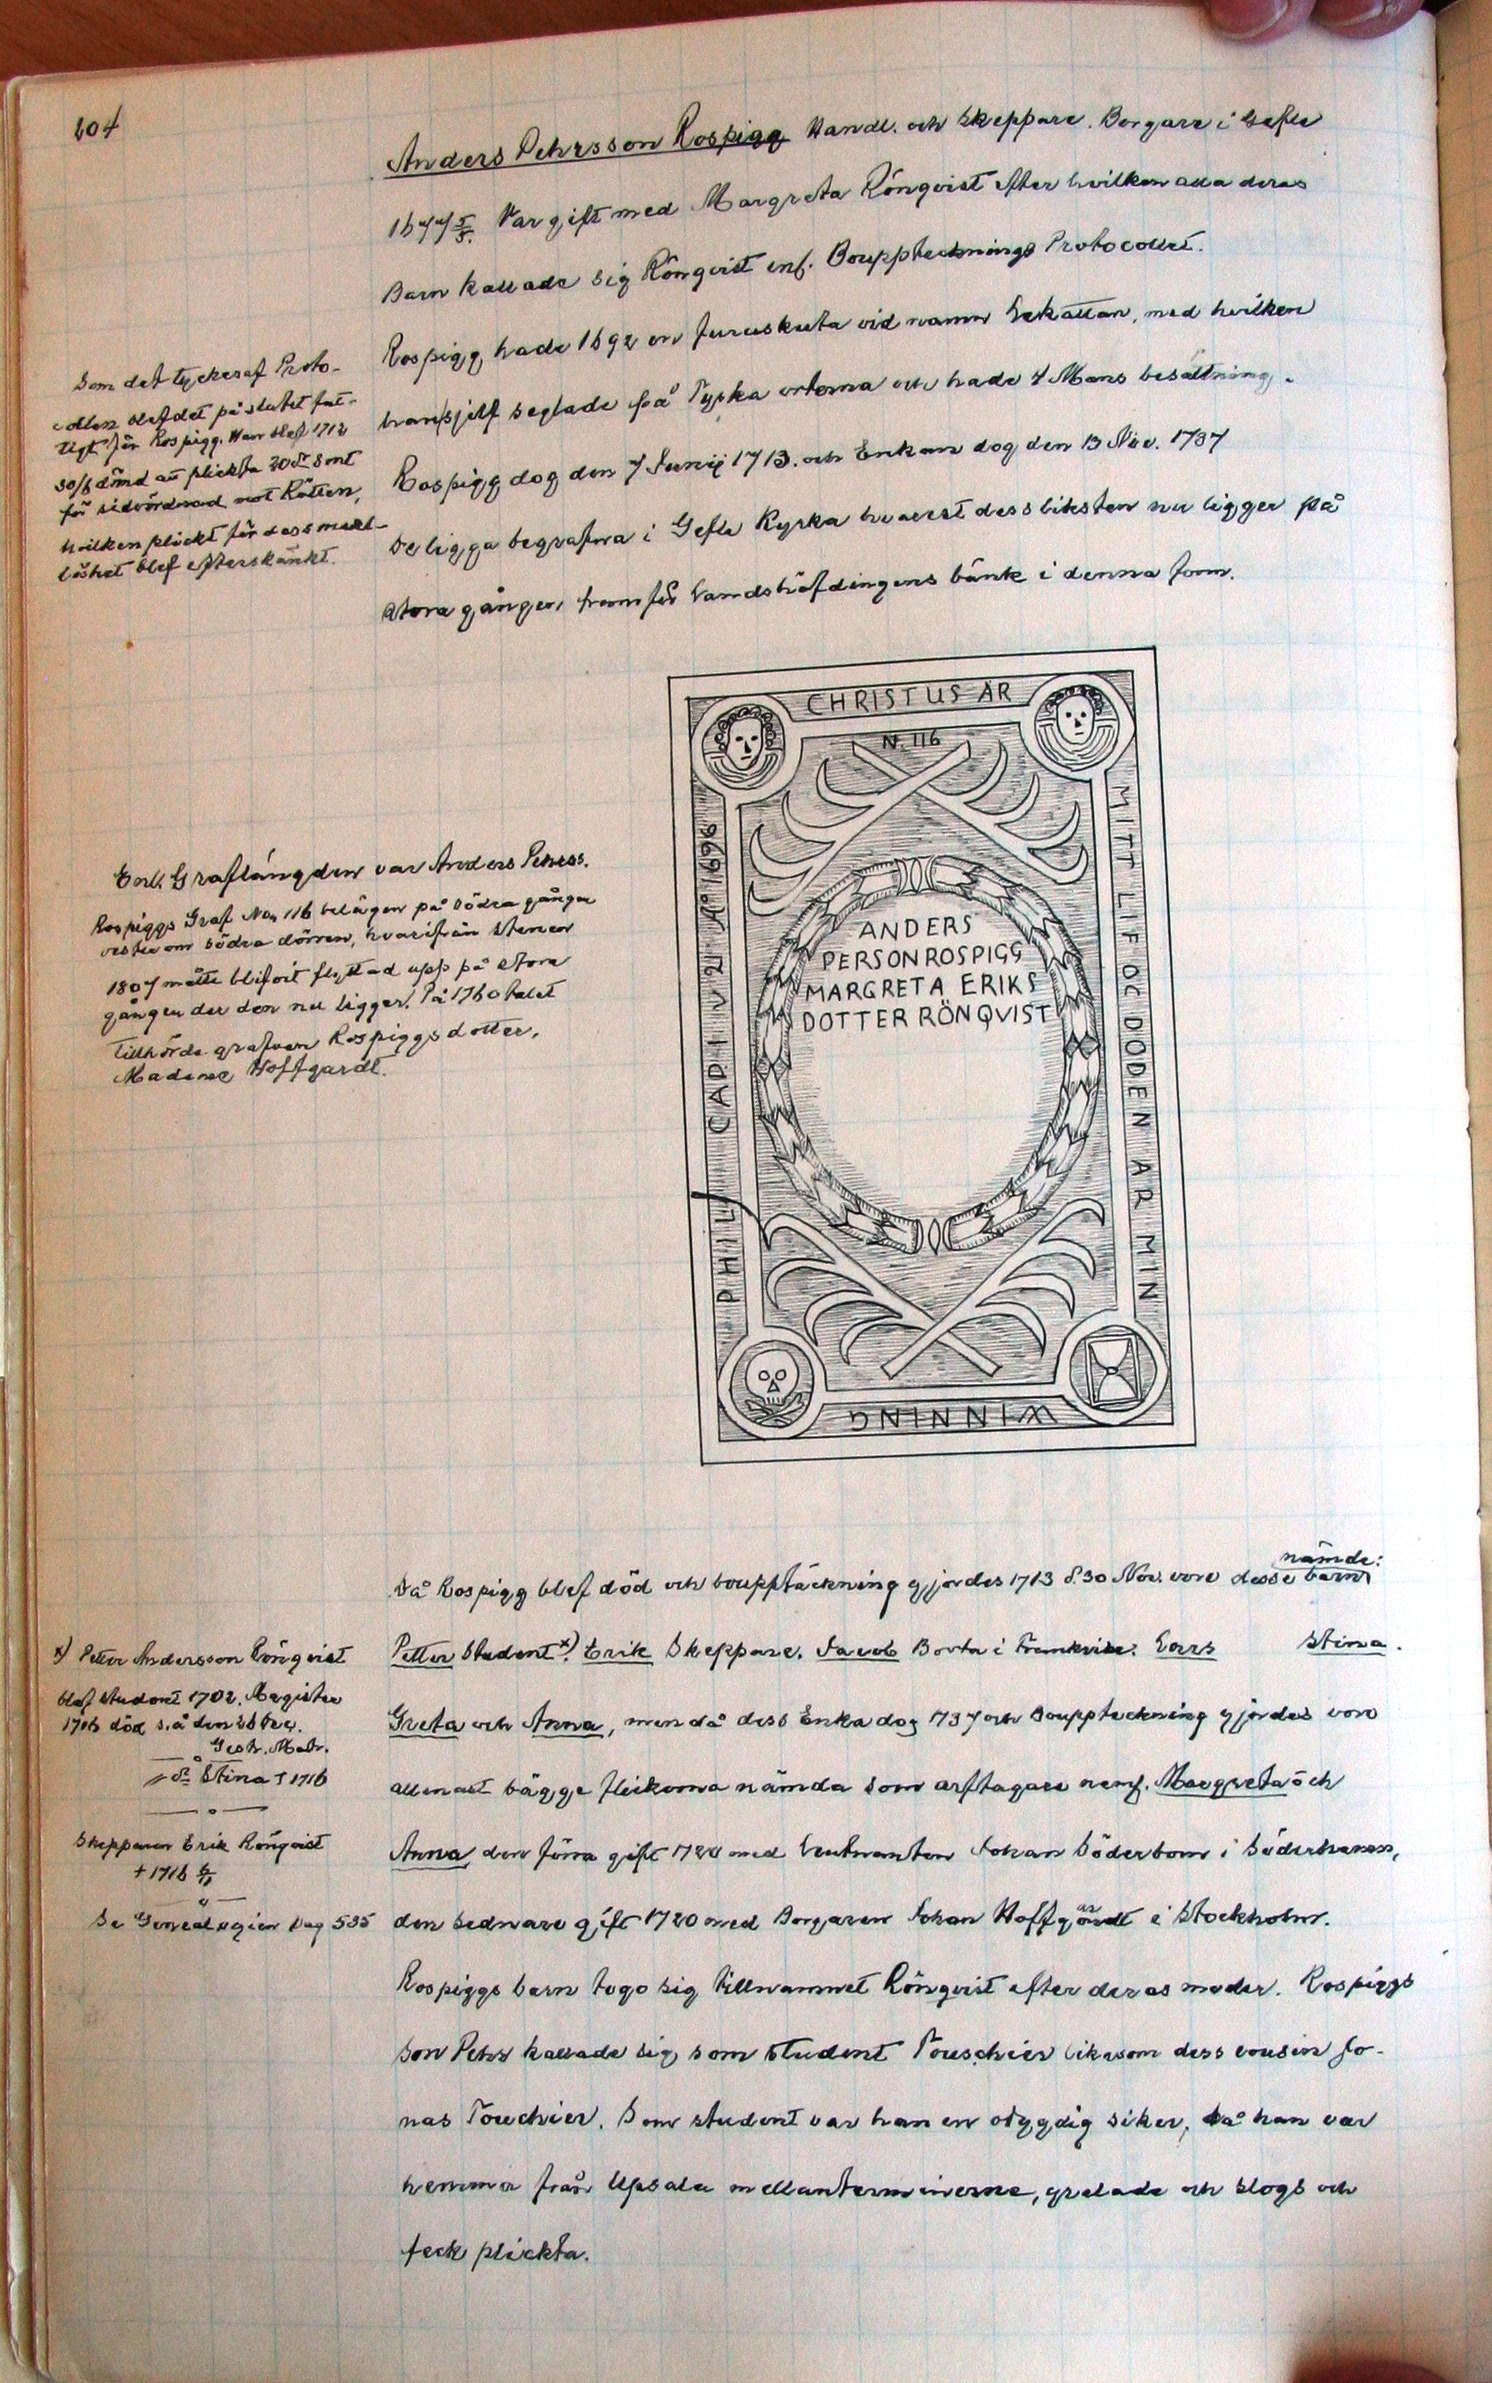 204
Anders Pehrsson Rospigg Handl. och Skeppare. Borgare i Gefle
1677 5/5. Var gift med Margreta Rönqvist efter hvilken alla deras
Barn kallade sig Rönqvist enl. Boupptecknings Protocollet.
Rospigg hade 1692 en Furuskuta vid namn Lekattan, med hvilken
han sjelf seglade på Tyska orterna och hade 7 Mans besättning.
Rospigg dog den 7 Junij 1713. och Enkan dog den 13 Nov. 1737
De ligga begrafna i Gefle Kyrka hvarest dess liksten nu ligger på
stora gången, framför Landshöfdingens bänk i denna form.
Som det tyckes af Proto-
collen blef det på slutet fat-
tigt för Rospigg. Han blef 1712
30/6 dömd att plickta 20 dr Smt
för sidvördnad mot Rätten,
hvilken plickt för dess medel-
löshet blef efterskänkt.
CHRISTUS ÄR
N. 116
MITT LIF OC DÖDEN ÄR MIN
WINNING
PHIL CAP I V 21 Ao 1696
ANDERS
PERSON ROSPIGG
MARGRETA ERIKS
DOTTER RÖNQVIST
Enl. Graflängden var Anders Pehrss.
Rospiggs Graf No 116 belägen på södra gången
vester om södra dörren, hvarifrån stenen
1807 måtte blifvit flyttad upp på stora
gången der den nu ligger. På 1760 talet
tillhörde grafven Rospiggs dotter,
Madame Hoffgardt.
Då Rospigg blef död och boupptäckning gjordes 1713 d. 30 Nov. voro desse barn nämde:
Petter Student x). Erik Skeppare. Jacob Borta i Frankrike. Lars Stina.
Greta och Anna, men då dess Enka dog 1737 och Bouppteckning gjordes voro
allenast bägge flickorna nämda som arftagare neml. Margreta och
Anna, den förra gift 1720 med Leutnanten Johan Söderbom i Söderhamn,
den sednare gift 1720 med Borgaren Johan Hoffgardt i Stockholm.
Rospiggs barn togo sig tillnamnet Rönqvist efter deras moder. Rospiggs
Son Pehr kallade sig som Student Touschier likasom dess cousin Jo-
nas Touchier. Som student var han en odygdig siker, då han var
hemma från Upsala mellan terminerne, grälade och slogs och
feck plickta.
x) Petter Andersson Rönqvist
blef student 1702. Magister
1706 död s.å den
Gestr. Matr.
Stina † 1716
Skepparen Erik Rönqvist
† 1716
Se Genealogien Pag 535